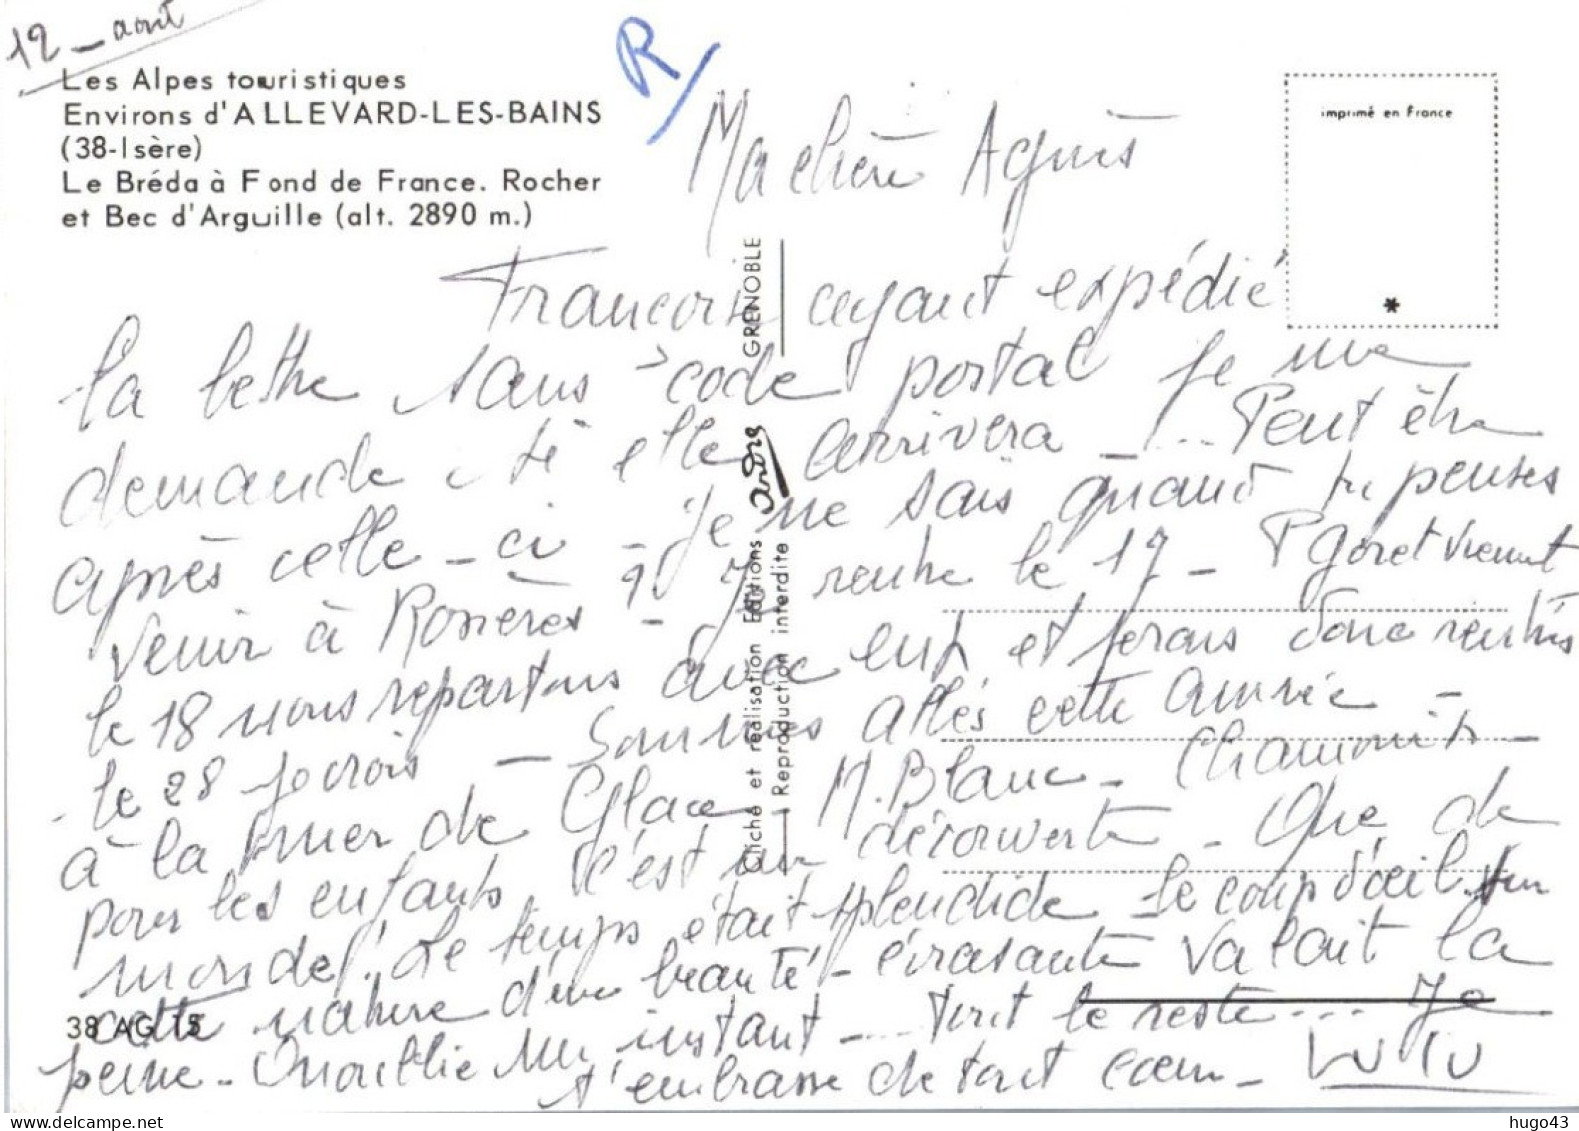 12 - août
Les Alpes touristiques
Environs d'ALLEVARD-LES-BAINS
(38-Isère)
Le Bréda à Fond de France. Rocher
et Bec d'Arguille (alt. 2890 m.)
R/
imprimé en France
*
Ma chère Agnès
Francois ayant expédié
la lettre sans code postal je me
demande si elle arrivera - ... Peut être
après celle-ci - Je ne sais quand tu penses
venir à Rosières ? Je rentre le 17 - P Goret viennent
le 18 nous repartons avec eux et serons donc rentrés
le 28 je crois - Sommes allés cette année -
à la mer de Glace M. Blanc - Chamonix -
pour les enfants c'est une découverte - Que de
monde! Le temps était splendide - le coup d'œil sur
cette nature d'une beauté - écrasante valait la
peine - Quoillie un instant .... tout le reste ... Je
t'embrasse de tout cœur - Lulu
38 AG 15
Cliché et réalisation Editions André GRENOBLE
Reproduction interdite
hugo43